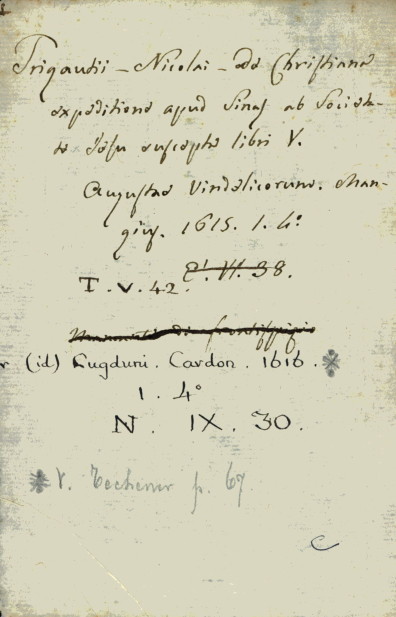 Trigautii – Nicolai – De Christiana
expeditione apud Sinas ab Societa-
te Jesu suscepta libri V.
Augustae Vindelicorum. Man-
gius. 1615. 1. 4°
T. V. 42. E. VI. 38.
Mancante di frontispizio
(id) Lugduni. Cardon. 1616. *
1. 4°
N. IX. 30.
* V. Techener p. 67
C